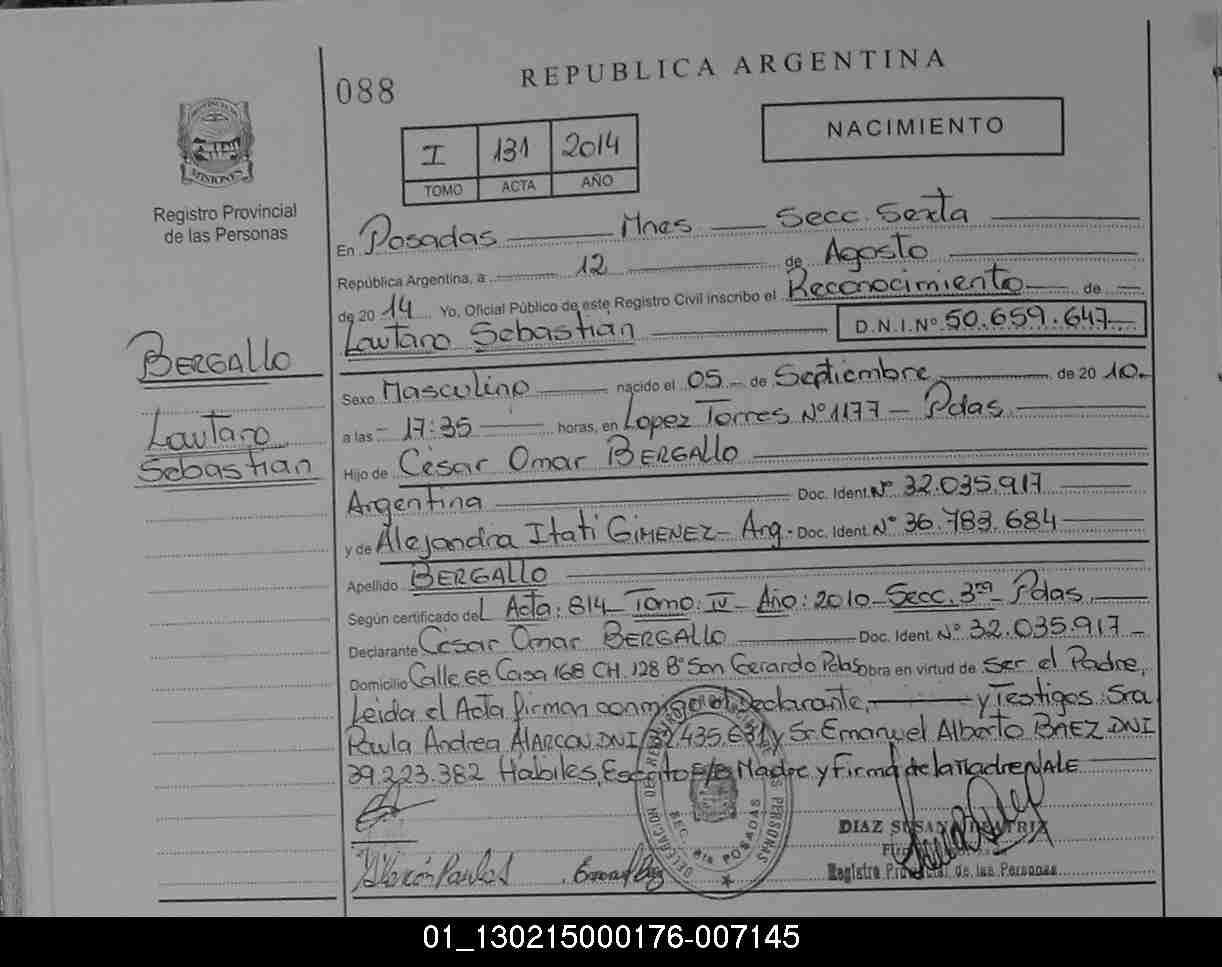 088
REPUBLICA ARGENTINA
NACIMIENTO
I 131 2014
TOMO ACTA AÑO
PROVINCIA DE MISIONES
Registro Provincial
de las Personas
BERGALLO
Lautaro
Sebastian
En Posadas Mnes Secc. Sexta
República Argentina, a 12 de Agosto
de 20 14 Yo, Oficial Público de este Registro Civil inscribo el Reconocimiento de
Lautaro Sebastián D.N.I. Nº 50.659.647
Sexo Masculino nacido el 05 de Septiembre de 20 10.
a las 17:35 horas, en Lopez Torres Nº 1177 - Pdas
Hijo de César Omar BERGALLO
Argentina Doc. Ident. Nº 32.035.917
y de Alejandra Itati GIMENEZ - Arg. Doc. Ident. Nº 36.783.684
Apellido BERGALLO
Según certificado del Acta: 814 - Tomo: IV - Año: 2010 - Secc. 3ra - Pdas
Declarante César Omar BERGALLO Doc. Ident. Nº 32.035.917
Domicilio Calle 68 Casa 168 CH. 128 Bº San Gerardo Pdas obra en virtud de Ser el Padre,
Leida el Acta firman conmigo el Declarante, y Testigos: Sra
Paula Andrea ALARCON DNI 32.435.631 y Sr. Emanuel Alberto BAEZ DNI
39.223.382 Habiles, Escrito Madre y Firma de la Madre VALE
Alarcón Paula
DELEGACION DEL REGISTRO PROVINCIAL DE LAS PERSONAS
SEC. 6ta POSADAS
DIAZ SUSANA BEATRIZ
Registro Provincial de las Personas
01_130215000176-007145